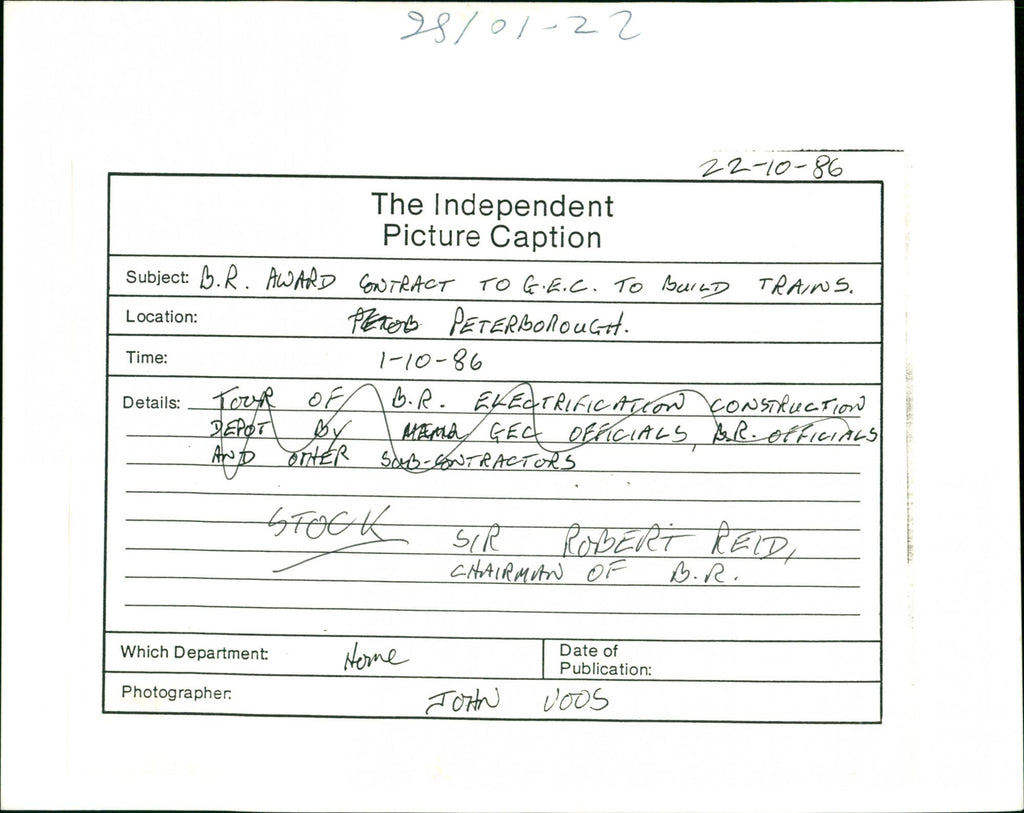 28/01-22
22-10-86
The Independent
Picture Caption
Subject: B.R. AWARD CONTRACT TO G.E.C. TO BUILD TRAINS.
Location: PETERBOROUGH.
Time: 1-10-86
Details: TOUR OF B.R. ELECTRIFICATION CONSTRUCTION
DEPOT BY GEC OFFICIALS, B.R. OFFICIALS
AND OTHER SUB-CONTRACTORS
STOCK SIR ROBERT REID,
CHAIRMAN OF B.R.
Which Department: Home
Date of
Publication:
Photographer: JOHN VOOS